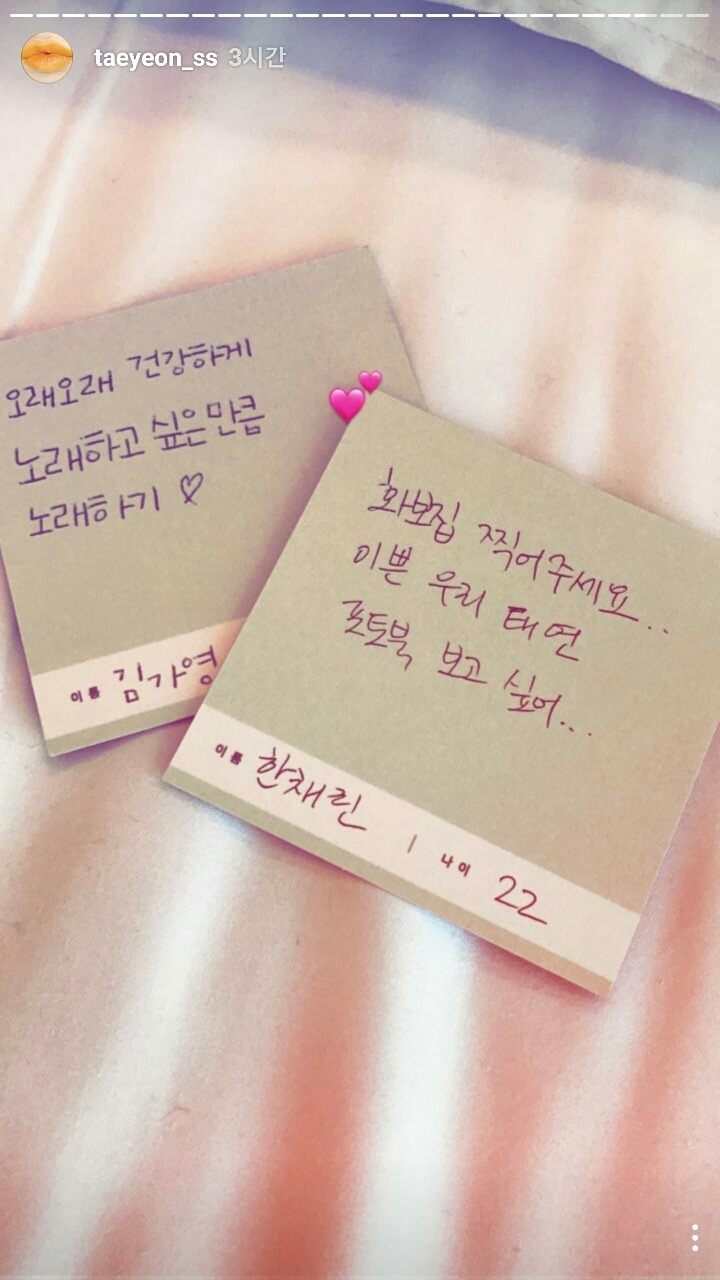 taeyeon_ss 3시간
오래오래 건강하게
노래하고 싶은만큼
노래하기 ♡
이름 김가영
화보집 찍어주세요..
이쁜 우리 태연
포토북 보고 싶어...
이름 한채린 | 나이 22